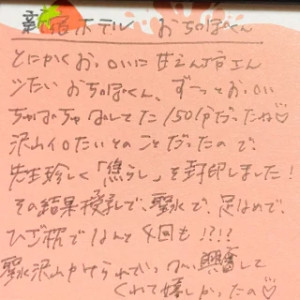 新宿ホテル おちっぽくん
とにかくお口いに甘えん坊さん
ツたいおちっぽくん、ずーっとお口い
ちゅぱちゅぱしてた150分だったね♡
沢山イロたいとのことだったので、
先生珍しく「焦らし」を封印しました!
その結果授乳で、聖水で、足なめで、
ひざ枕でなんと4回も!!!!
聖水沢山かけられていっぱい興奮して
くれて嬉しかったの♡